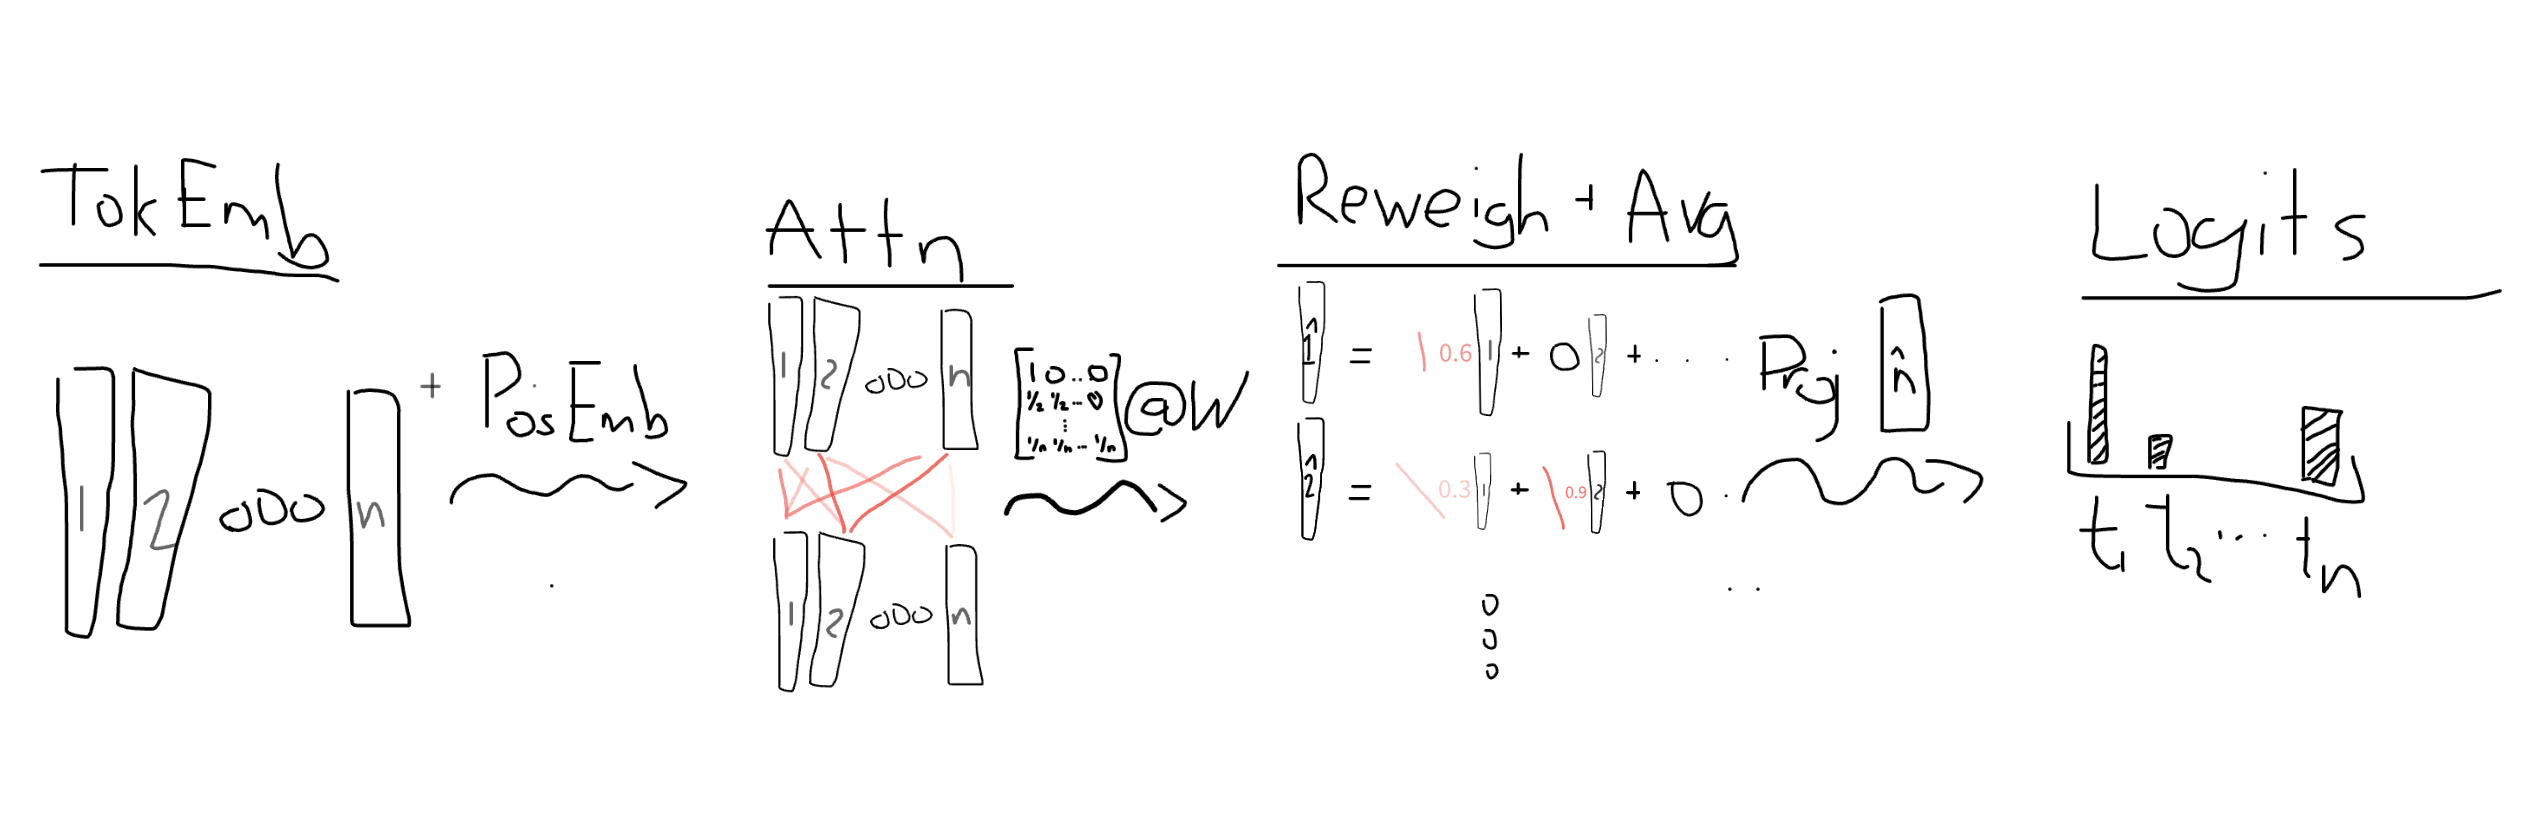 TokEmb
1 2 ooo n
+ PosEmb
Attn
1 2 ooo n
1 2 ooo n
[1 0 .. 0
½ ½ ... 0
⋮
1/n 1/n ... 1/n] @W
Reweigh + Avg
1̂ = 0.6 1 + 0 2 + . . .
2̂ = 0.3 1 + 0.9 2 + 0 .
o
o
o
Proj n̂
Logits
t₁ t₂ ... tn